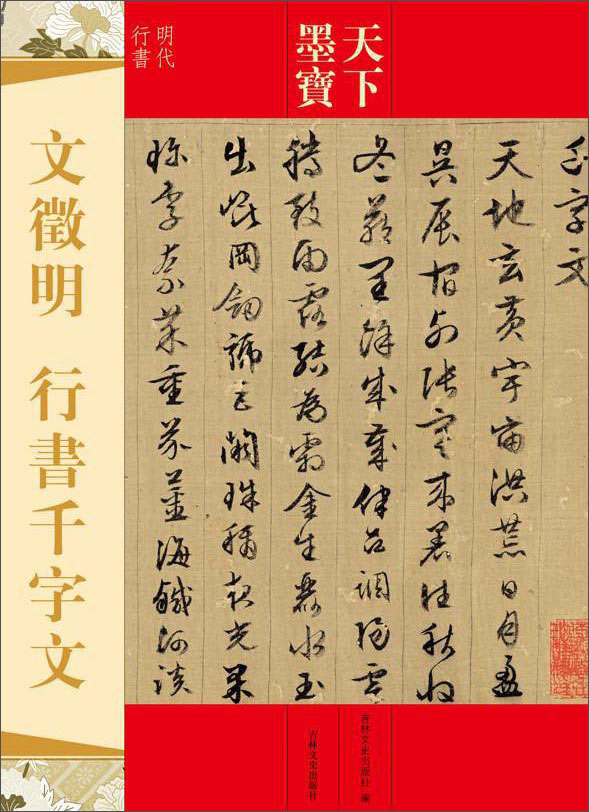 天下
墨寶
明代
行書
文徵明 行書千字文
千字文
天地玄黃宇宙洪荒日月盈
昃辰宿列張寒來暑往秋收
冬藏閏餘成歲律召調陽雲
騰致雨露結為霜金生麗水玉
出崑岡劍號巨闕珠稱夜光果
珍李柰菜重芥薑海鹹河淡
吉林文史出版社 編
吉林文史出版社